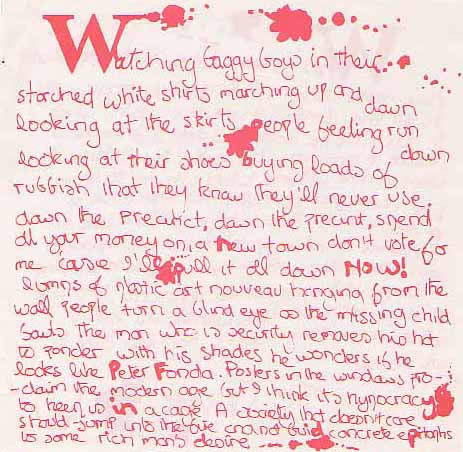 Watching baggy boys in their
starched white shirts marching up and down
looking at the skirts people feeling run down
looking at their shoes buying loads of
rubbish that they know they'll never use.
down the Precinct, down the precint, spend
all your money on, a new town don't vote for
me 'cause I'll pull it all down NOW!
lumps of plastic art nouveau hanging from the
wall people turn a blind eye as the missing child
bawls The man who is security removes his hat
to ponder with his shades he wonders if he
looks like Peter Fonda. Posters in the windows pro-
-claim the modern age but I think it's hypocracy
to keep us in a cage A society that doesn't care
should jump into the fire and not build concrete epitaphs
to some rich man's desire